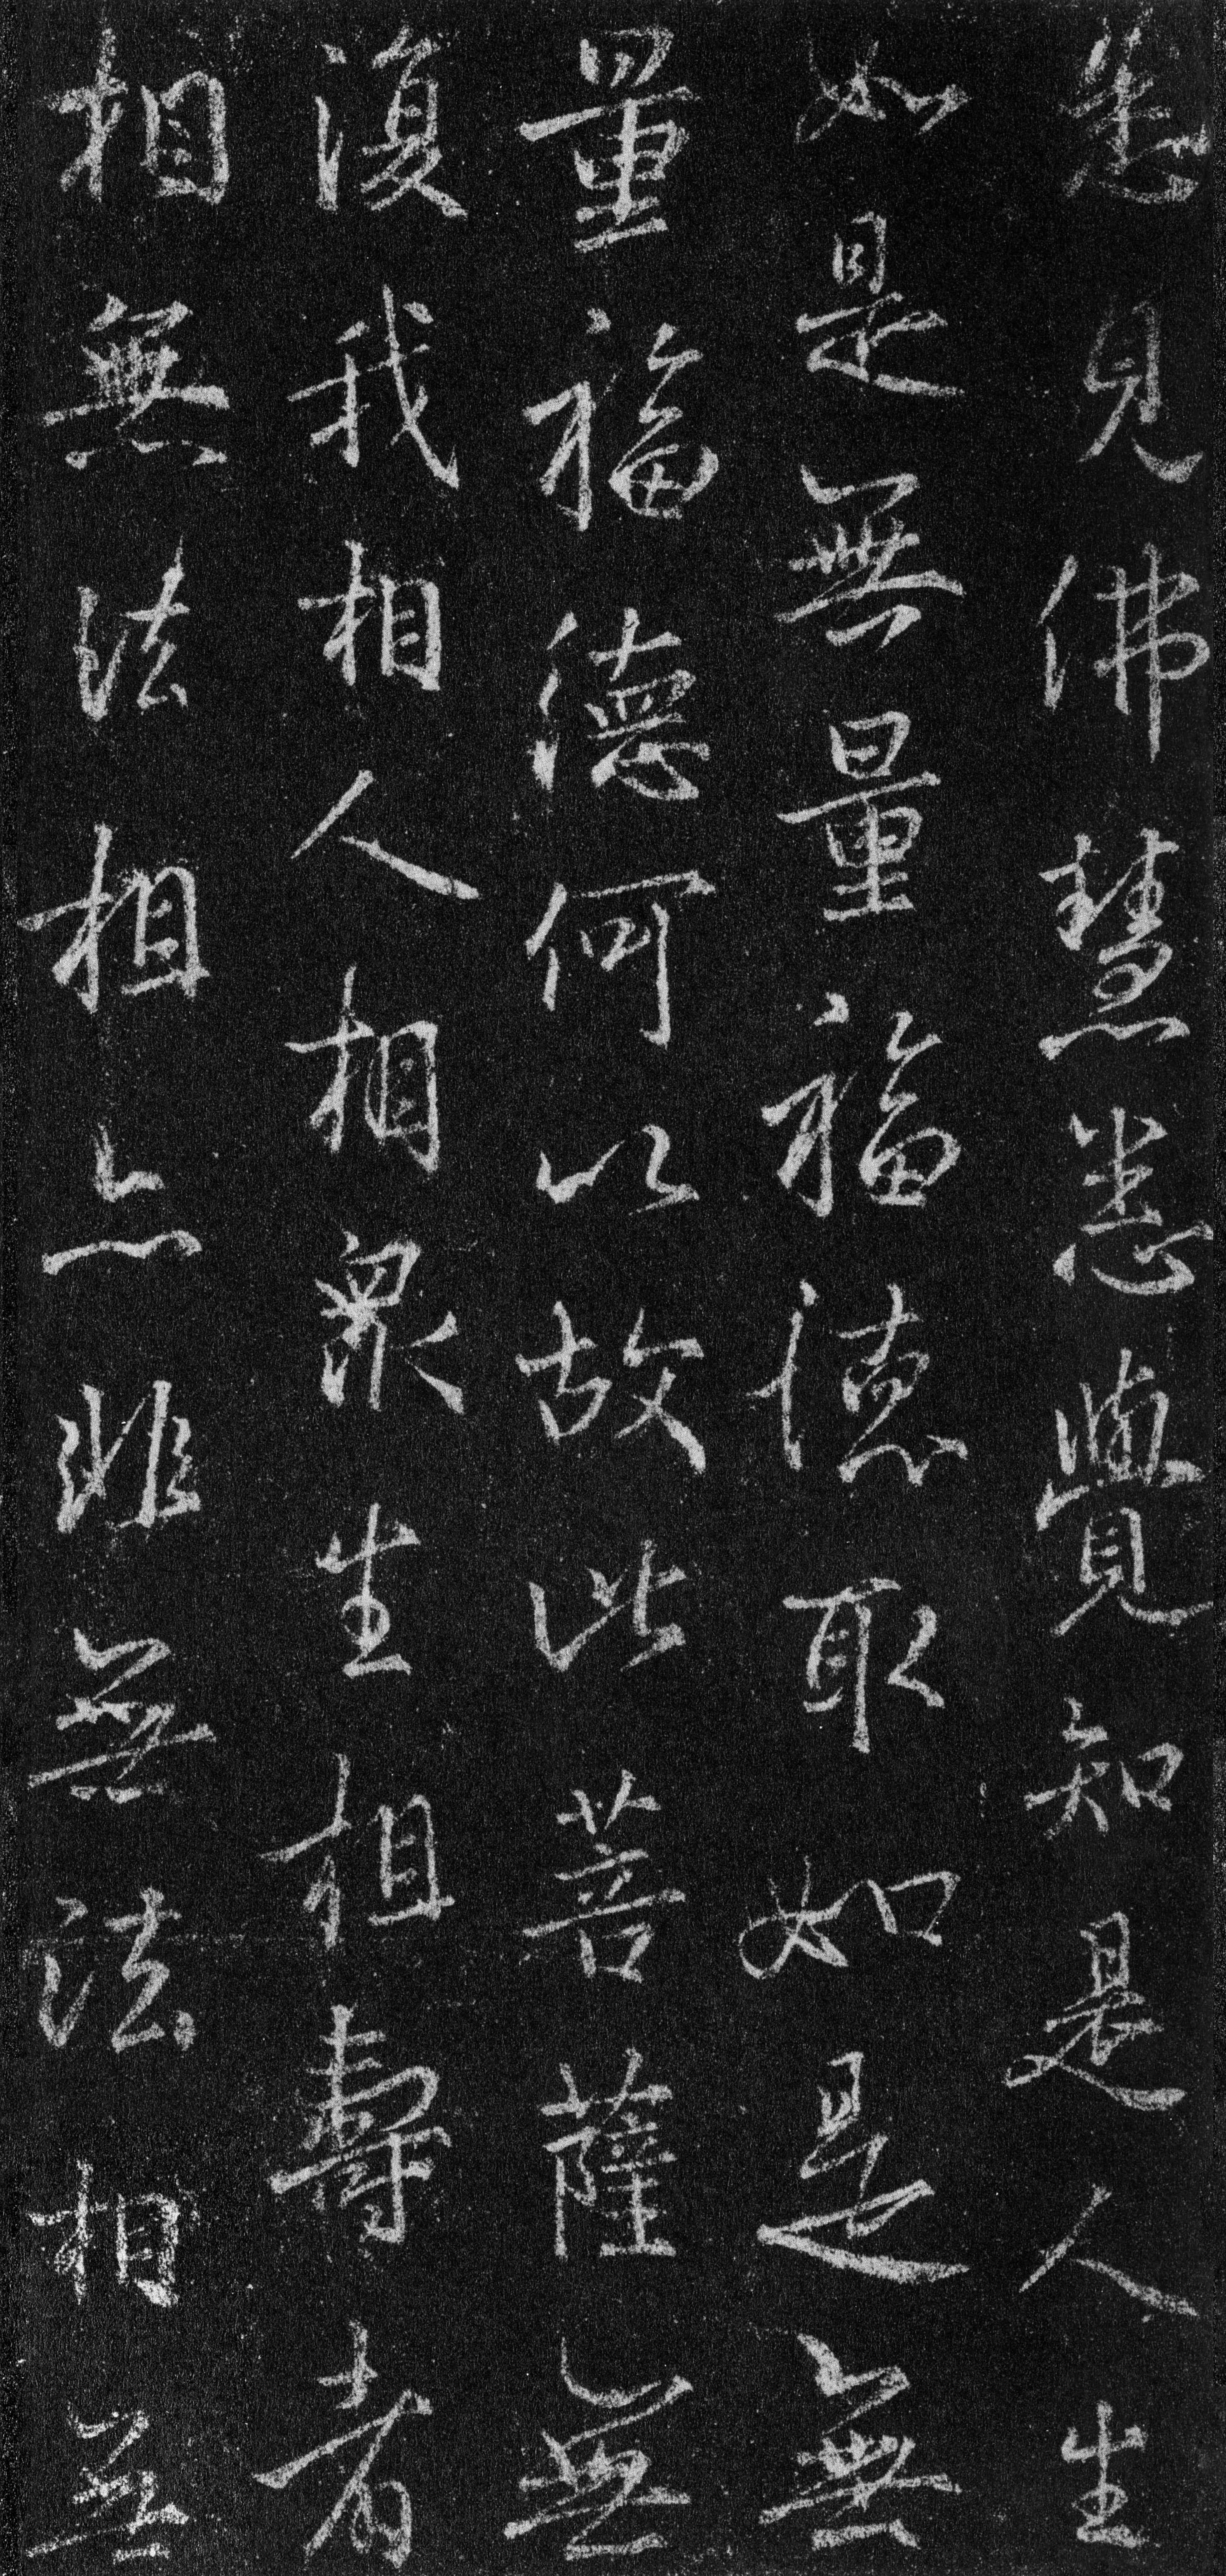 悉見佛慧悉覺知是人生
如是無量福德取如是無
量福德何以故此菩薩無
復我相人相衆生相壽者
相無法相相亦非無法相無